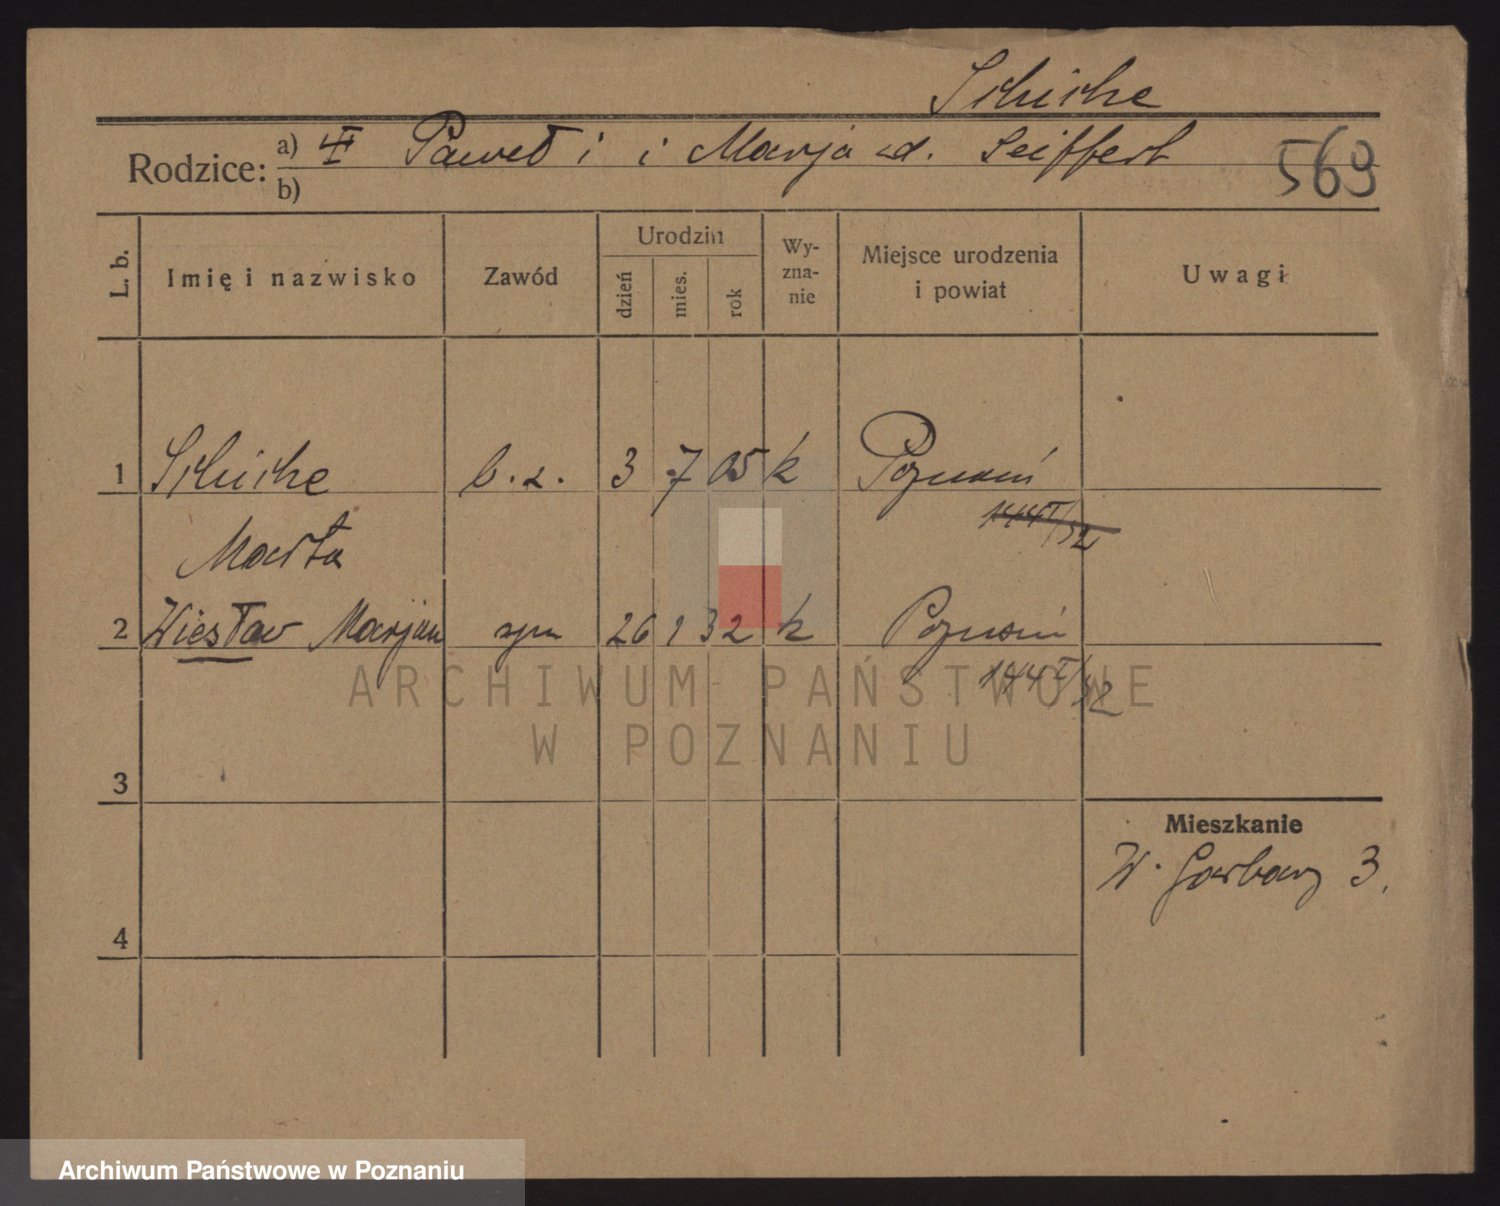 Schiche
Rodzice: a) Paweł i i Marja d. Seiffert
b)
569
L. b. Imię i nazwisko Zawód Urodzin dzień mies. rok Wyznanie Miejsce urodzenia i powiat Uwagi
1 Schiche b. z. 3 7 05 k Poznań
Marta
2 Wiesław Marjan syn 26 1 32 k Poznań
144 I/32
ARCHIWUM PAŃSTWOWE
W POZNANIU
3
Mieszkanie
W. Garbary 3.
4
Archiwum Państwowe w Poznaniu